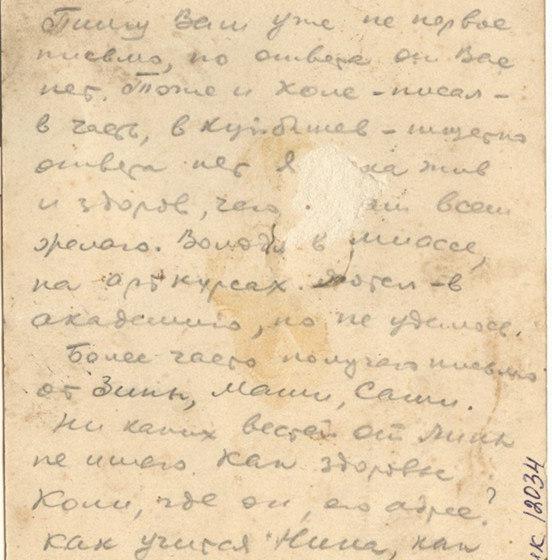 Пишу Вам уже не первое
письмо, но ответа от Вас
нет. Тоже и Коле - писал -
в часть, в Куйбышев - тщетно
ответа нет Я ка жив
и здоров, чего ам всем
желаю. Володя в Миассе,
на арт курсах. Хотел - в
академию, но не удалось.
Более часто получаю письма
от Зины, Маши, Саши.
Ни каких вестей от Лины
не имею. Как здоровье
Коли, где он, его адрес?
Как учится Нина, как
НК 12034